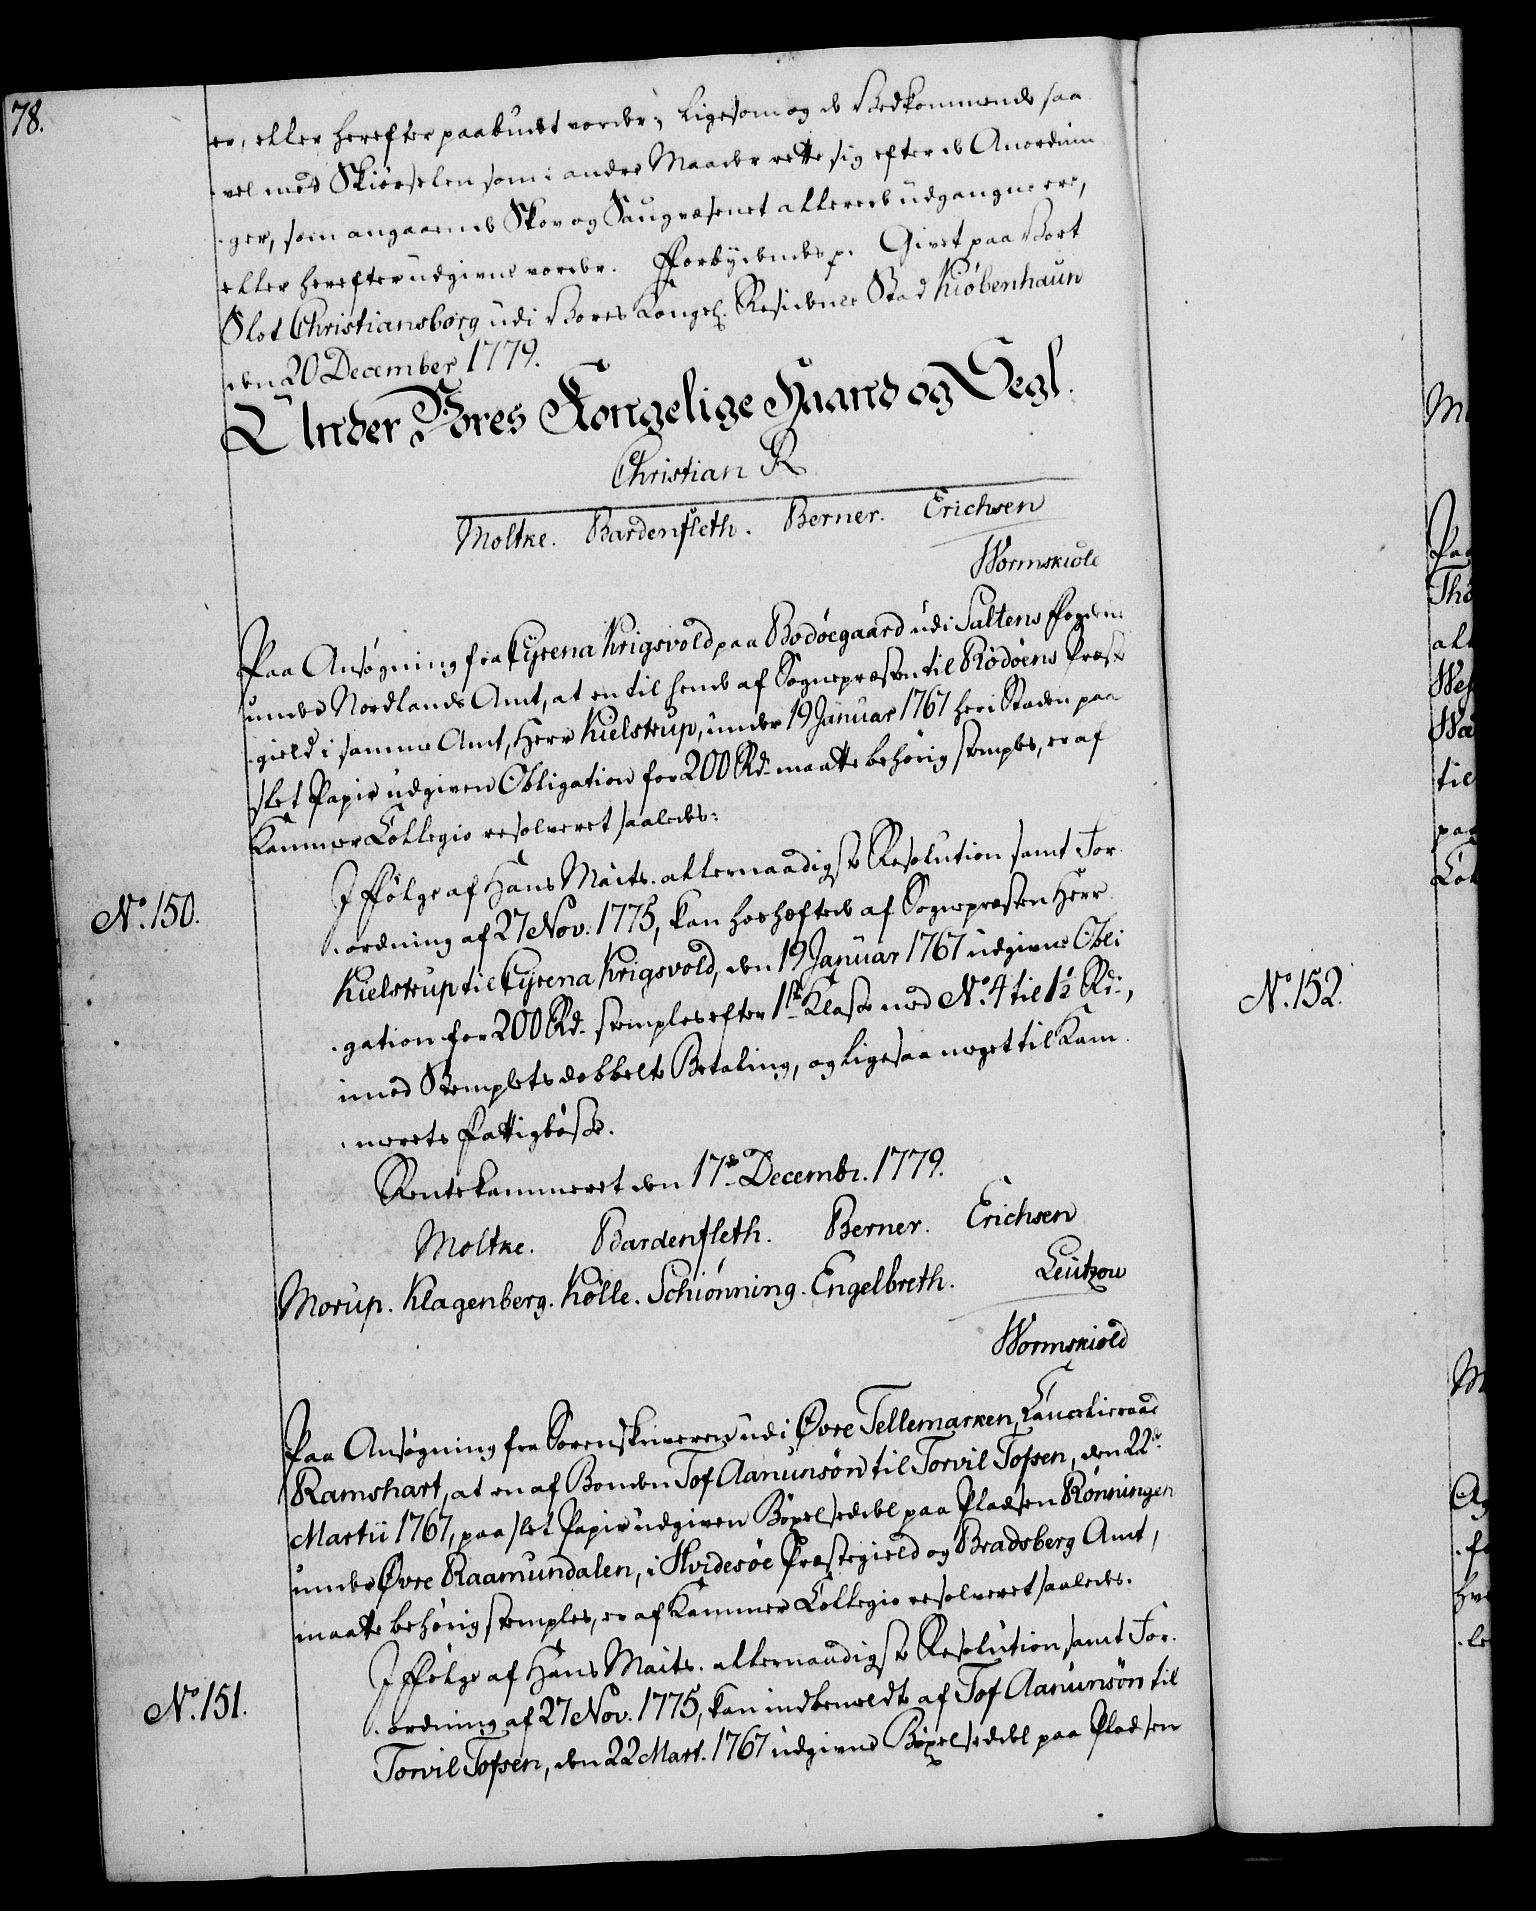 78.
er, eller herefter paabudet vorder; ligesom og de Vedkommende saa
vel med Skiørselen som i andre Maader rette sig efter de Anordnin
ger, som angaaende Skov og Saugvæsenet allerede udgangne ere,
eller herefter udgivne vorder. Forbydendes p. Givet paa Vort
Slot Christiansborg udi Vores Kongel. Residence Stad Kiøbenhaun
den 20 December 1779.
Under Vores Kongelige Haand og Segl.
Christian R
Moltke. Bardenfleth. Berner. Erichsen
Wormskiold
Paa Ansøgning fra Cyrena Krigsvold paa Bodøegaard udi Saltens Fogderie
under Nordlands Amt, at en til hende af Sognepræsten til Rödöens Præste
gield i samme Amt, Herr Kielstrup, under 19 Januar 1767 her i Staden paa
slet Papir udgiven Obligation for 200 Rd. maatte behørig stemples, er af
Kammer Collegio resolveret saaledes:
No. 150.
I Følge af Hans Maits. allernaadigste Resolution samt For
ordning af 27 Nov. 1775, kan hoshæftede af Sognepræsten Herr
Kielstrup til Cyrena Krigsvold, den 19 Januar 1767 udgivne Obli
gation for 200 Rd. stemples efter 1ste Klasse med No. 4 til 1½ Rd.,
imod Stemplets dobbelte Betaling, og ligesaa meget til Kam
merets Fattigbøsse.
Rentekammeret den 17de Decembr. 1779.
Moltke. Bardenfleth. Berner. Erichsen
Morup. Klagenberg. Kölle. Schiönning. Engelbreth. Leützow
Wormskiold
Paa Ansøgning fra Sorenskriveren udi Øvre Tellemarken, Cancelieraad
Ramshart, at en af Bonden Tof Aanunsøn til Torvil Tofsen, den 22de
Martii 1767, paa slet Papir udgiven Bøxelseddel paa Pladsen Rønningen
under Øvre Raamundalen, i Hvidesøe Præstegield og Bradsberg Amt,
maatte behørig stemples, er af Kammer Collegio resolveret saaledes.
No. 151.
I Følge af Hans Maits. allernaadigste Resolution samt For
ordning af 27 Nov. 1775, kan indbemeldte af Tof Aanunsön til
Torvil Tofsen, den 22 Mart. 1767 udgivne Bøxelseddel paa Pladsen
No. 152.